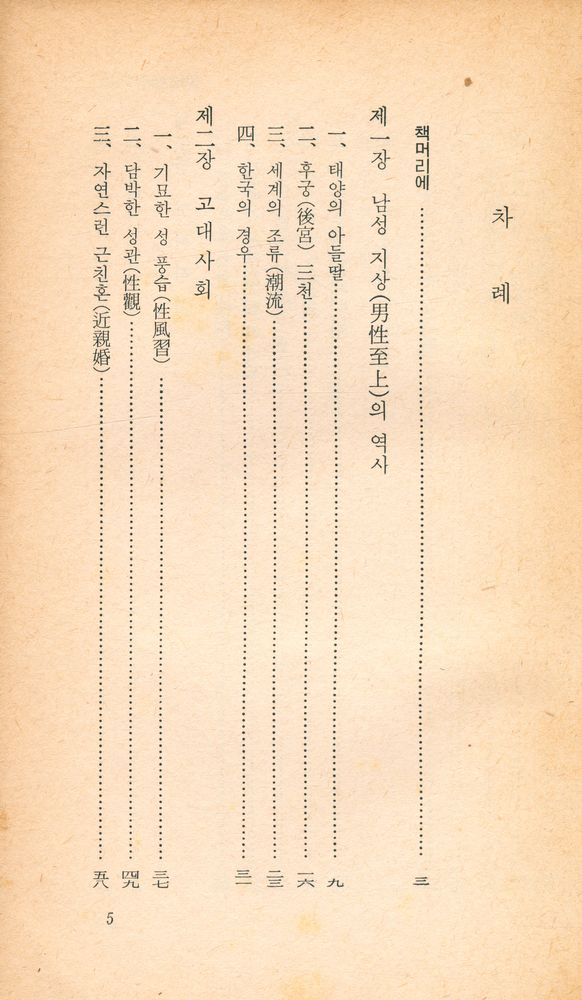 차 례
책머리에 …… 三
제一장 남성 지상(男性至上)의 역사
一、 태양의 아들딸 …… 九
二、 후궁(後宮) 三천 …… 一六
三、 세계의 조류(潮流) …… 二三
四、 한국의 경우 …… 三一
제二장 고대사회
一、 기묘한 성 풍습(性風習) …… 三七
二、 담박한 성관(性觀) …… 四九
三、 자연스런 근친혼(近親婚) …… 五八
5